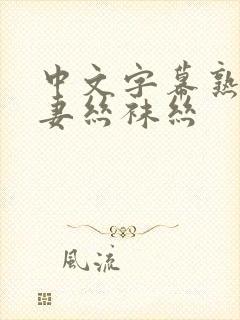 中文字幕熟
妻丝袜丝
風流